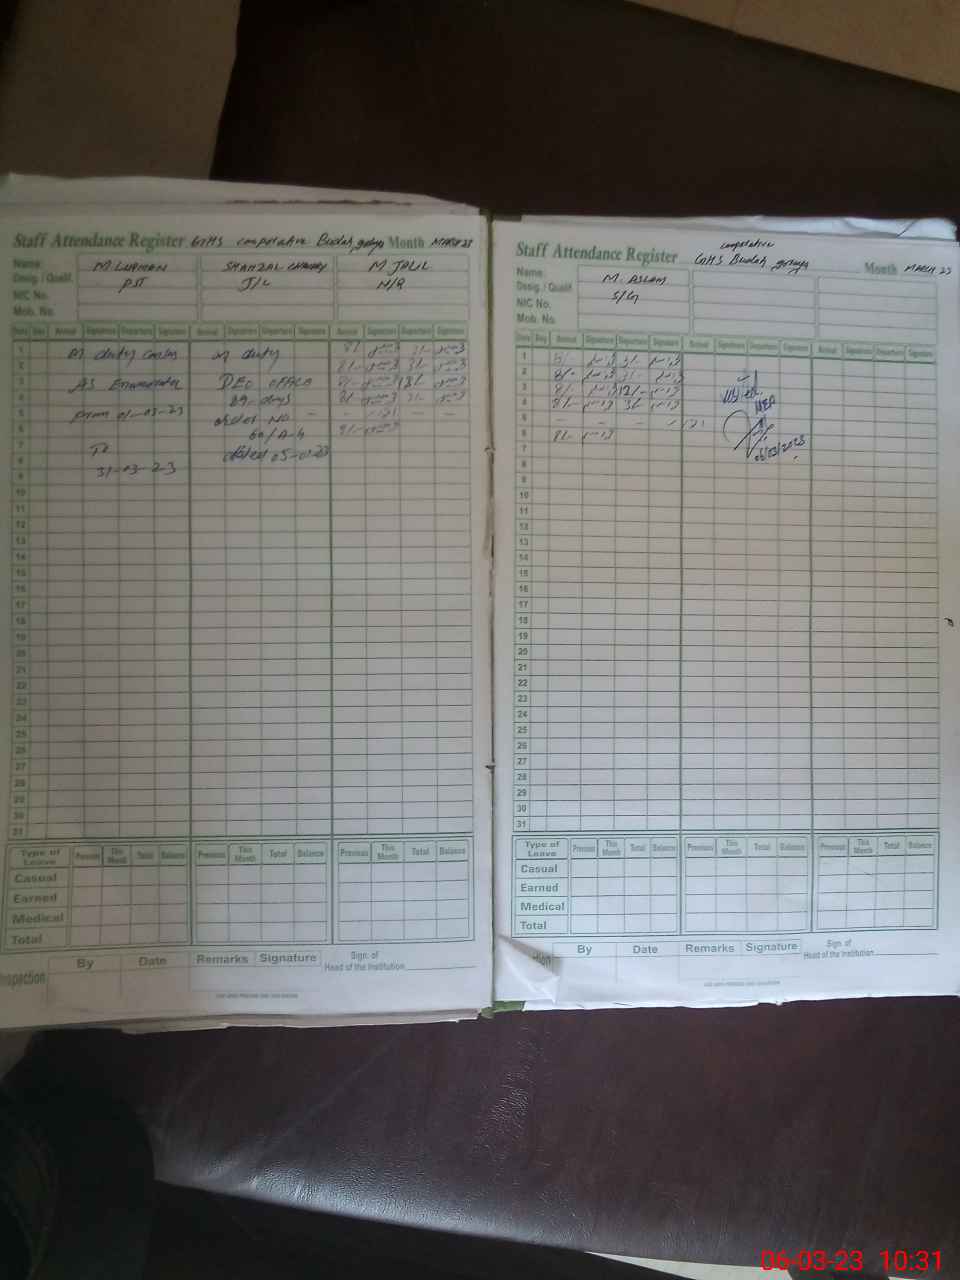 Staff Attendance Register GHS cooperative Budah goraya Month MARCH 23
Name: M LUQMAN SHAHZAL CHAUDRY M JALIL
Desig. / Qualif. PST J/C N/Q
NIC No.
Mob. No.
Date Day Arrival Signature Departure Signature Arrival Signature Departure Signature Arrival Signature Departure Signature
1 on duty on duty 8/- 3/-
2 8/- 3/-
3 AS Enumerator DEO office 8/- 12/-
4 89-days 8/- 3/-
5 from 01-03-23 order No - - - -
6 60/A-4 8/-
7 To dated 05-01-23
8 31-03-23
9
10
11
12
13
14
15
16
17
18
19
20
21
22
23
24
25
26
27
28
29
30
31
Type of Leave Previous This Month Total Balance Previous This Month Total Balance Previous This Month Total Balance
Casual
Earned
Medical
Total
Inspection By Date Remarks Signature Sign. of Head of the Institution
cooperative
Staff Attendance Register GHS Budah goraya Month MARCH 23
Name: M. ASLAM
Desig. / Qualif. S/G
NIC No.
Mob. No.
Date Day Arrival Signature Departure Signature Arrival Signature Departure Signature Arrival Signature Departure Signature
1 8/- 3/-
2 8/- 3/-
3 8/- 12/-
4 8/- 3/- MEA
5 - - - -
6 8/- 06/03/2023
7
8
9
10
11
12
13
14
15
16
17
18
19
20
21
22
23
24
25
26
27
28
29
30
31
Type of Leave Previous This Month Total Balance Previous This Month Total Balance Previous This Month Total Balance
Casual
Earned
Medical
Total
By Date Remarks Signature Sign. of Head of the Institution
06-03-23 10:31